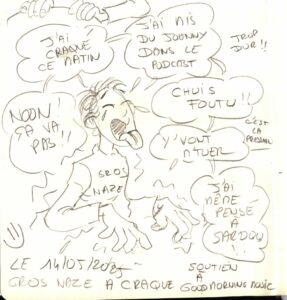 J'AI
CRAQUÉ
CE MATIN
J'AI MIS
DU JOHNNY
DANS LE
PODCAST
TROP
DUR !!
NOON !
ÇA VA
PAS !!
CHUIS
FOUTU !!
C'EST
LA
Y'VONT
M'TUER
GROS
NAZE
J'AI
MÊME
PENSÉ
À
SARDOU !!
LE 14/05/
GROS NAZE A CRAQUÉ
SOUTIEN
À
GOOD MORNING MUSIC